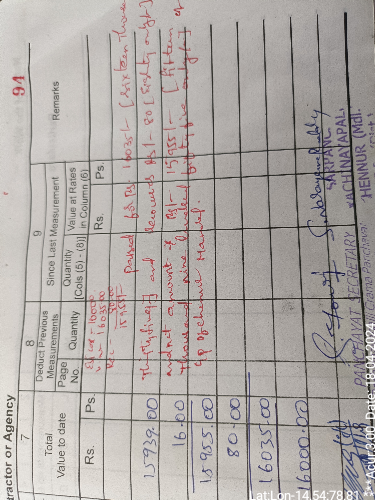 94
tractor or Agency
7
8
9
Total
Value to date
Deduct Previous
Measurements
Since Last Measurement
Remarks
Page
No.
Quantity
Quantity
[Cols (5) - (8)]
Value at Rates
in Column (6)
Rs.
Ps.
Rs.
Ps.
15939.00
16.00
15955.00
80.00
16035.00
16000.00
Est cost - 16000
16035.00
15955
Passed for Rs. 16035/- (Sixteen Thou
Thirty five) and Recoveries Rs/- 80 (Eighty only)
and net amount of Rs- 15955/- (fifteen
thousand nine hundred fifty five only) of
GP of Chennur Mandal.
PANCHAYAT SECRETARY
Grama Panchayat
SARPANCH
YACHINAYAPAL
HENNUR (Mdl.
Lat Lon-14.54:78.81
**Acu:3.00 Date: 16:04:2024